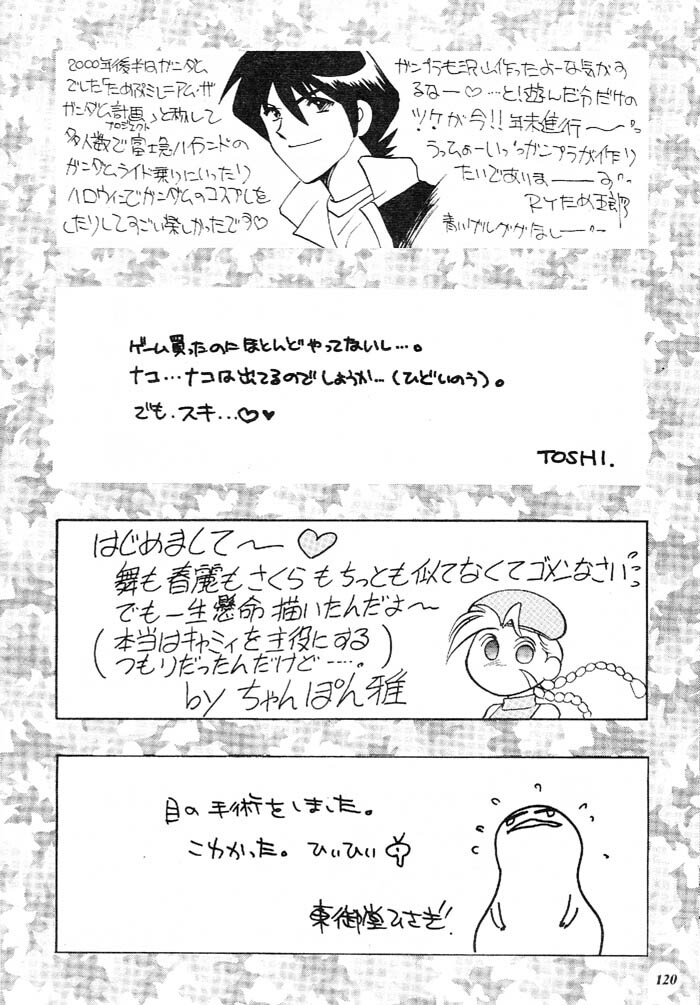 2000年後半はガンダム
でした「ため改ミレニアム ザ
ガンダム計画」と称して
プロジェクト
多人数で富士急ハイランドの
ガンダムライド乗りにいったり
ハロウィンでガンダムのコスプレをし
たりしてすごい楽しかったです♡
ガンプラも沢山作ったよーな気がす
るなー♡…とり遊んだ分だけの
ツケが今!!年末進行〜〜
うっひょーいっぱいガンプラが作り
たいであいまーーす
BYため五郎
青いゲルググなしーー
ゲーム買ったのにほとんどやってないし…。
ナコ…ナコは出てるのでしょうか…(ひどいのう)。
でも.スキ...♡♥
TOSHI.
はじめまして〜〜♡
舞も春麗もさくらもちっとも似てなくてゴメンなさい
でも一生懸命描いたんだよ〜
(本当はキャミィを主役にする
つもりだったんだけど……。)
by ちゃんぽん雅
目の手術をしました。
こわかった。ひぃひぃ
東御堂ひさぎ!
120